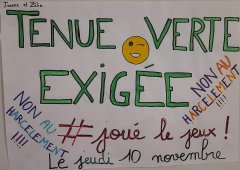 Jeanne et Zélie
TENUE VERTE
EXIGÉE
NON AU
HARCELEMENT
!!!!
NON AU
HARCELEMENT
!!!!
#joué le jeux !
Le jeudi 10 novembre